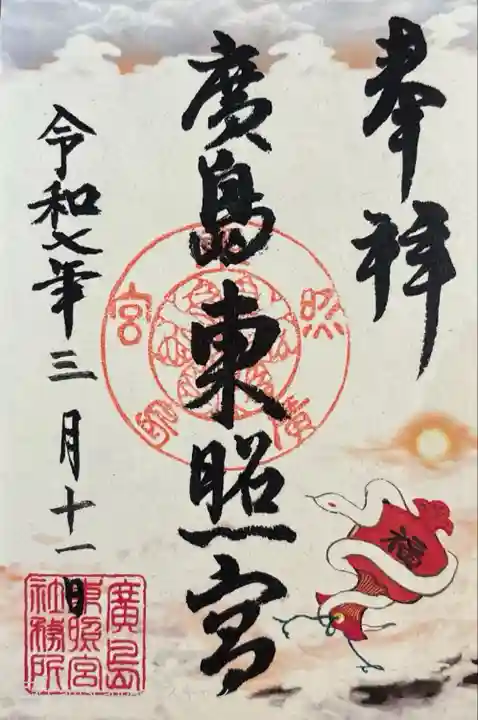 奉拝
廣島東照宮
令和七年三月十一日
福
廣島
東照宮
社務所